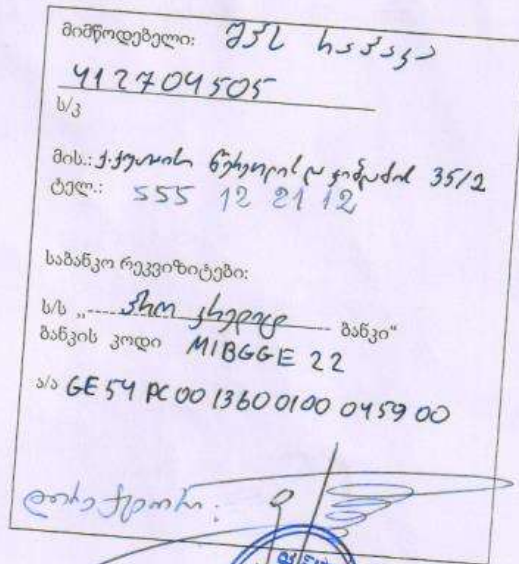 მიმწოდებელი: შპს
412704505
ს/კ
მის.: 35/2
ტელ.: 555 12 21 12
საბანკო რეკვიზიტები:
ს/ს „---- პრო კრედიტ ---- ბანკი“
ბანკის კოდი MIBGGE 22
ა/ა GE 54 PC 00 1360 0100 0459 00
დირექტორი: